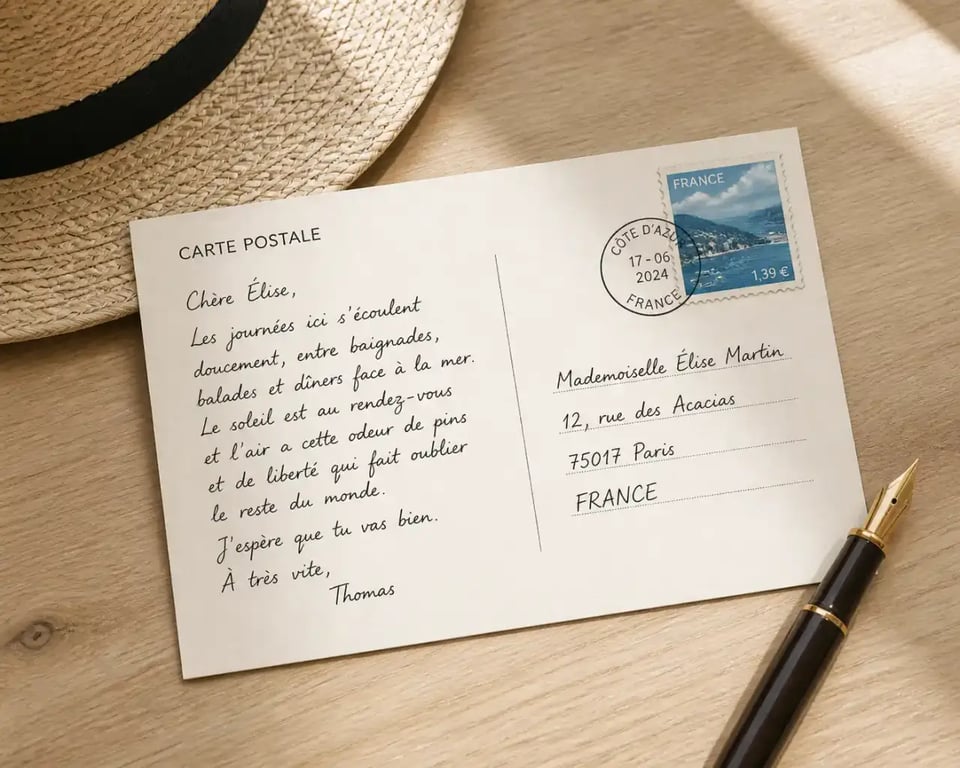 CARTE POSTALE
Chère Élise,
Les journées ici s'écoulent
doucement, entre baignades,
balades et dîners face à la mer.
Le soleil est au rendez-vous
et l'air a cette odeur de pins
et de liberté qui fait oublier
le reste du monde.
J'espère que tu vas bien.
À très vite,
Thomas
FRANCE
1,39 €
CÔTE D'AZUR
17-06
2024
FRANCE
Mademoiselle Élise Martin
12, rue des Acacias
75017 Paris
FRANCE